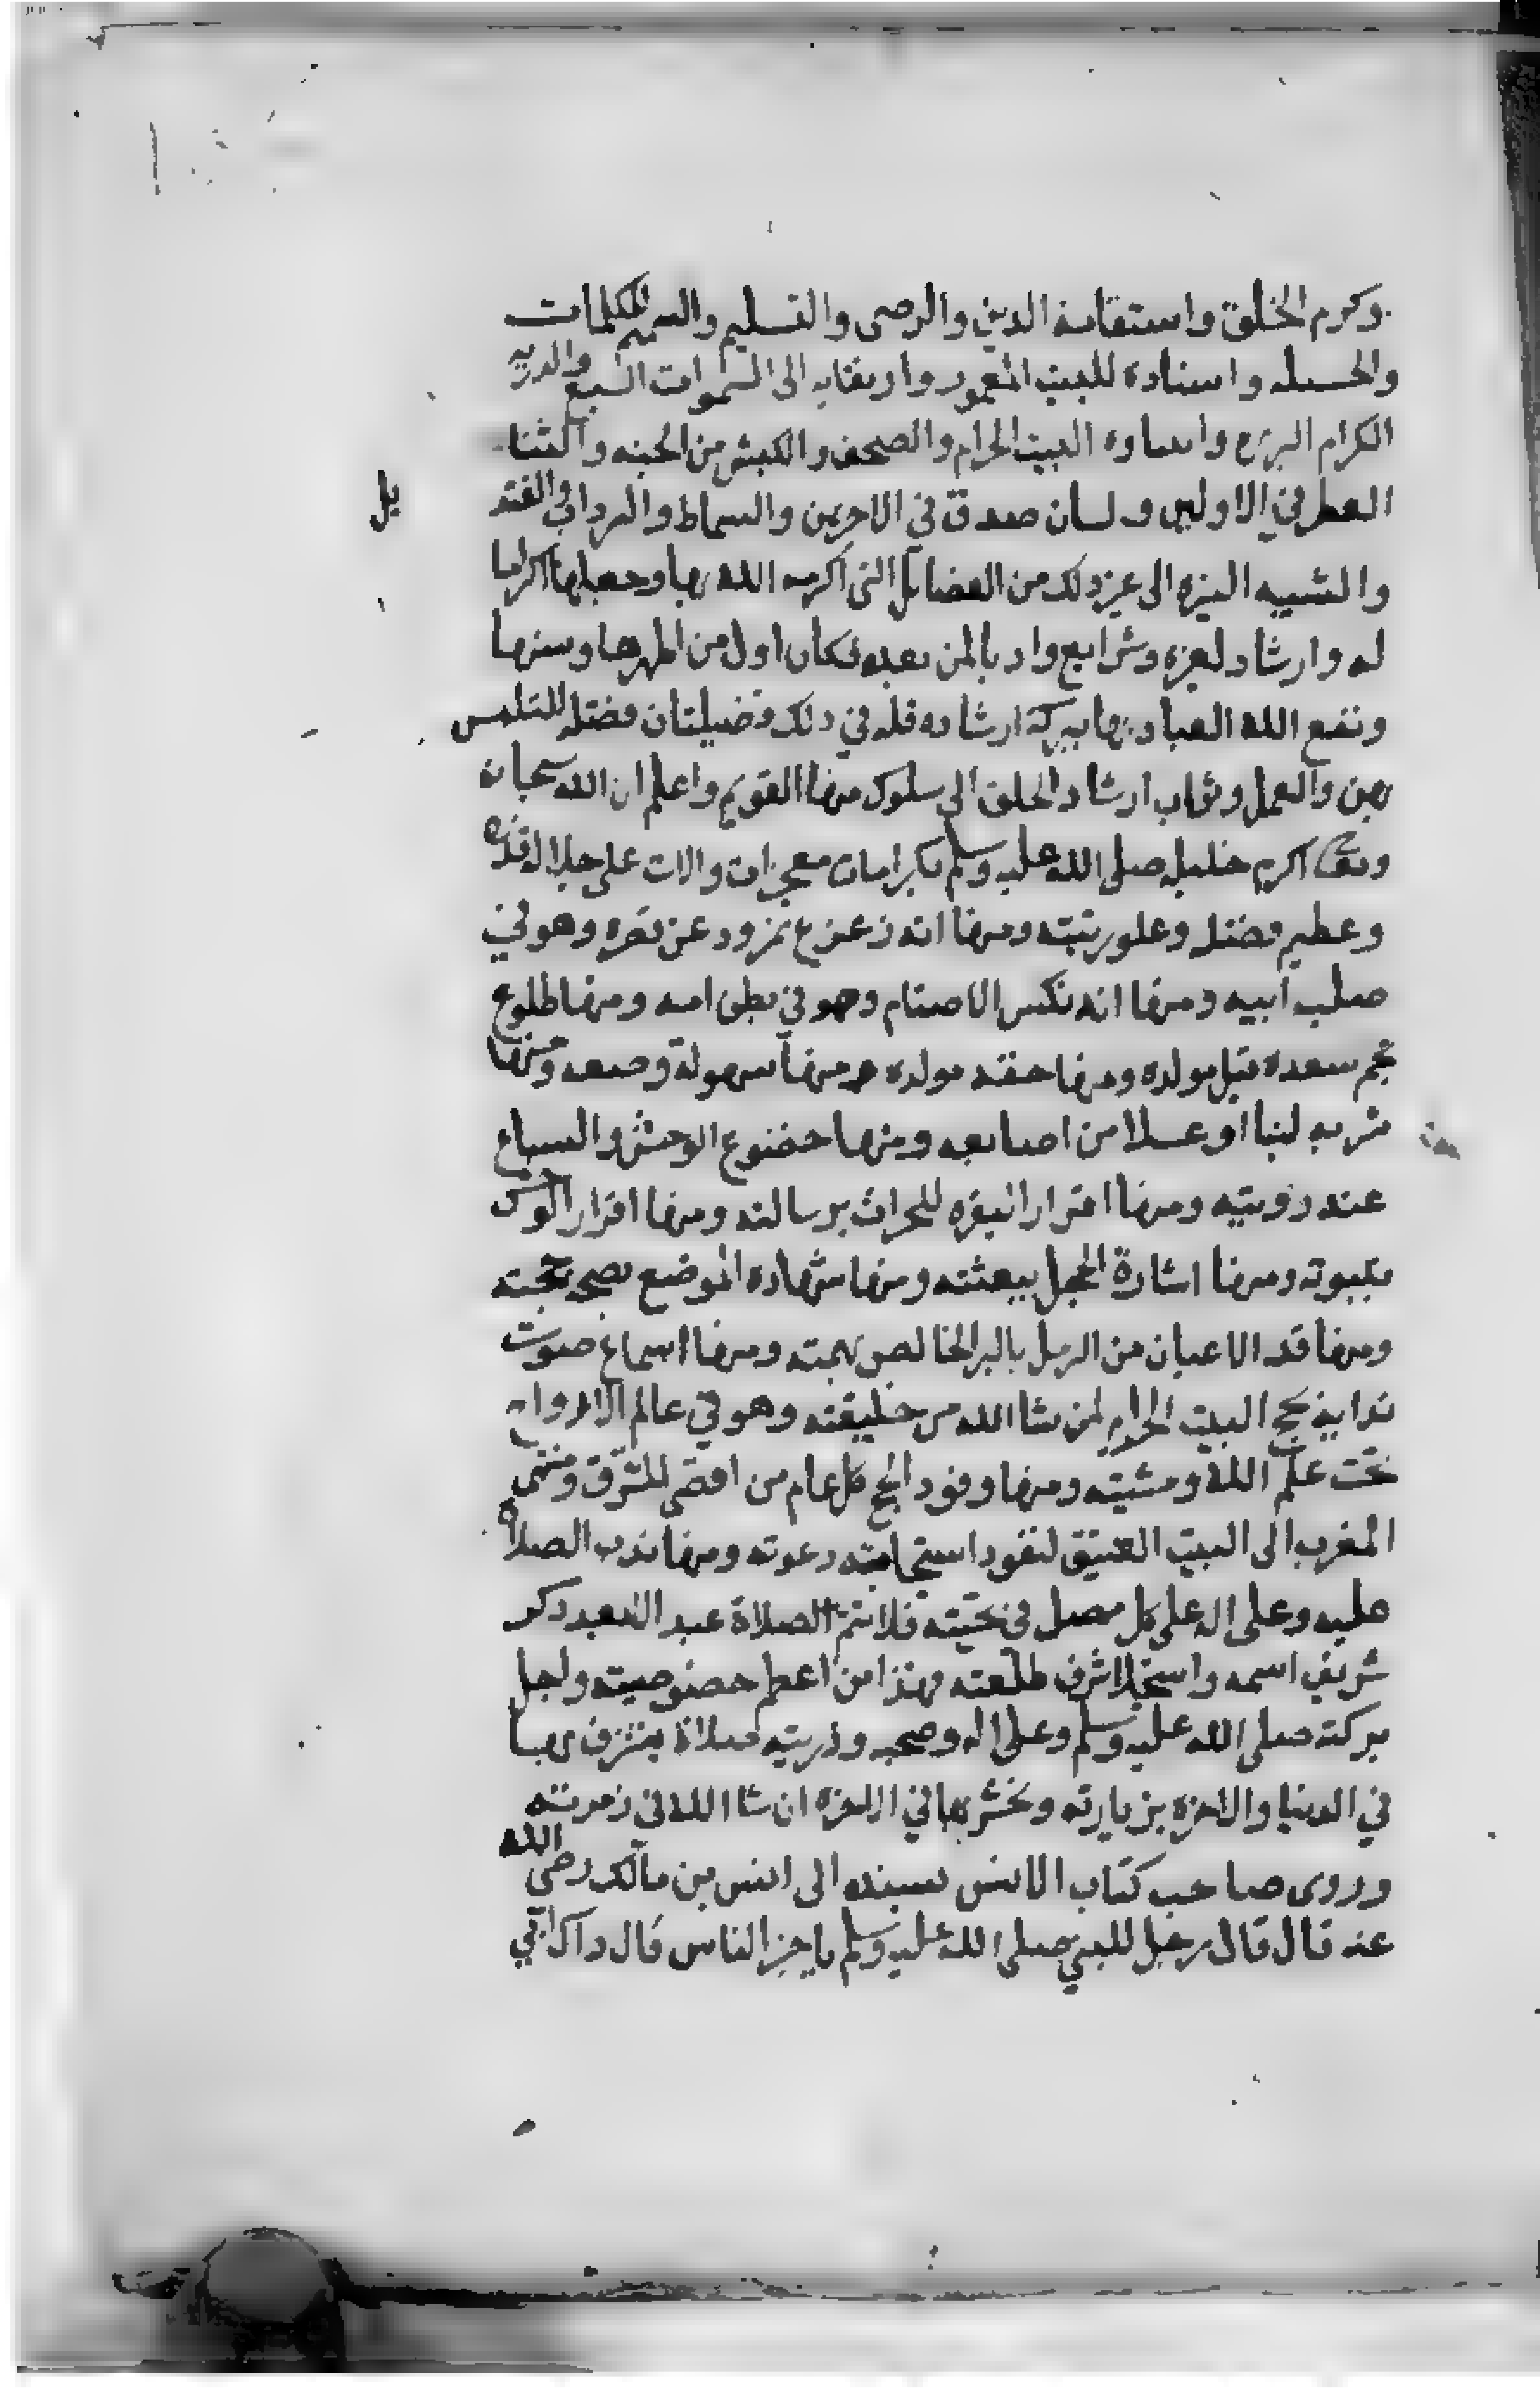 وكرم الخلق واستقامة الدين والرضى والتسليم والسمى للكلمات
والحسله واسناده للبيت المعمور وارتقايه الى السموات السبع والذريه
الكرام البرع وابنا وه البيت الحرام والصحف والكبش من الجنه والثنا
العطر في الاولين ولسان صدق في الاخرين والسماط والبرد ابي والقند
يل
والشيبه النيره الى غير ذلك من الفضايل التي اكرمه الله بها وجعلها اكراما
له وارشاد لغيره وشرايع واد بالمن بعده فكان اول من اظهرها وسنها
ونفع الله العباد بها ببركة ارشاده فله في ذلك فضيلتان فضله للتلبس
بهن والعمل وثواب ارشاد الخلق الى سلوك منها القويم واعلم ان الله سبحانه
وتعالى اكرم خليله صلى الله عليه وسلم بكرامات معجزات والات على جلالة قدره
وعظيم فضله وعلو رتبته ومنها انه زعزع نمرود عن مقره وهو في
صلب ابيه ومنها انه نكس الاصنام وهو في بطن امه ومنها طلوع
نجم سعده قبل مولده ومنها خفة مولده ومنها سهولة وضعه ومنها
شربه لبنا او عسلا من اصابعه ومنها خضوع الوحش والسباع
عند رؤيته ومنها اقرار البقره للحراث برسالته ومنها اقرار الوحش
بنبوته ومنها اشارة الجبل ببعثته ومنها شهادة الموضع بصحة محبته
ومنها قد الاعيان من الرمل بالبر الخالص بهمته ومنها اسماع صوت
ندايه بحج البيت الحرام لمن شا الله من خليقته وهو في عالم الارواح
تحت علم الله ومشيته ومنها وفود الحج كل عام من اقصى المشرق ومنتهى
المغرب الى البيت العتيق لنفود استجابة دعوته ومنها ندب الصلاة
عليه وعلى اله على كل مصل في تحيته فلا تتم الصلاة عبد الا بعد ذكر
شريف اسمه واستجلا شرف طلعته وهذا من اعظم خصوصيته واجل
بركته صلى الله عليه وسلم وعلى اله وصحبه وذريته صلاة يتشرف بها
في الدنيا والاخره بزيارته ونحشر بها في الاخره ان شا الله في زمرته
وروى صاحب كتاب الانس بسنده الى انس بن مالك رضي الله
عنه قال قال رجل للنبي صلى الله عليه وسلم يا خير الناس قال ذاك ابي